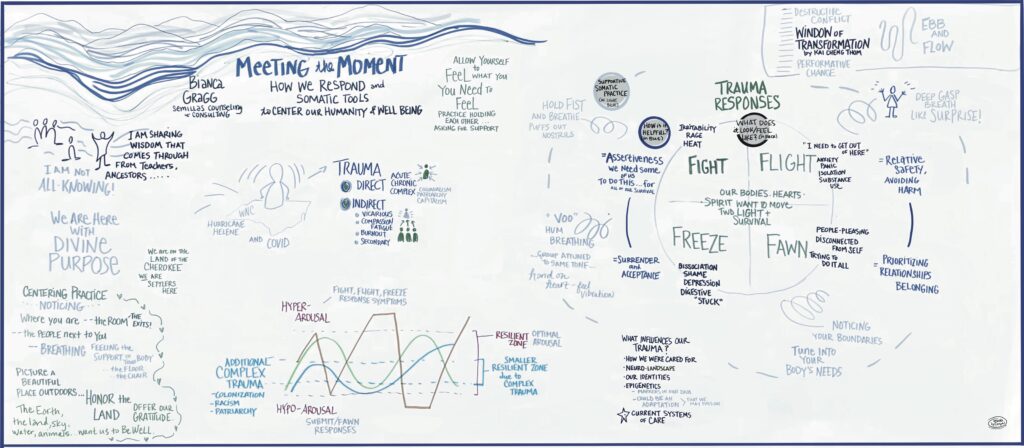 MEETING the MOMENT
HOW WE RESPOND and
SOMATIC TOOLS
to CENTER OUR HUMANITY & WELL BEING
BIANCA
GRAGG
SEMILLAS COUNSELING
& CONSULTING
ALLOW YOURSELF
to FEEL WHAT YOU
YOU NEED TO
FEEL
PRACTICE HOLDING
EACH OTHER...
ASKING FOR SUPPORT
I AM SHARING
WISDOM THAT
COMES THROUGH
FROM TEACHERS,
ANCESTORS.....
I AM NOT
ALL-KNOWING!
WE ARE HERE
WITH
DIVINE
PURPOSE
WE ARE ON THE
LAND OF THE
CHEROKEE
WE ARE
SETTLERS
HERE
WNC
HURRICANE
HELENE
AND COVID
TRAUMA
DIRECT
ACUTE
CHRONIC
COMPLEX
COLONIALISM
PATRIARCHY
CAPITALISM
INDIRECT
VICARIOUS
COMPASSION
FATIGUE
BURNOUT
SECONDARY
CENTERING PRACTICE
NOTICING
Where you are --- the ROOM THE EXITS!
--- the PEOPLE next to You
--- BREATHING FEELING the
SUPPORT of YOUR BODY
...the FLOOR
...the CHAIR
PICTURE A
BEAUTIFUL
PLACE OUTDOORS...
HONOR the
LAND
OFFER OUR
GRATITUDE
The Earth,
the land, sky,
water, animals.. want us to Be Well.
FIGHT, FLIGHT, FREEZE
RESPONSE SYMPTOMS
HYPER-
AROUSAL
RESILIENT
ZONE
OPTIMAL
AROUSAL
SMALLER
RESILIENT ZONE
due to
COMPLEX
TRAUMA
ADDITIONAL
COMPLEX
TRAUMA
-COLONIZATION
-RACISM
-PATRIARCHY
HYPO-AROUSAL
SUBMIT/FAWN
RESPONSES
DESTRUCTIVE
CONFLICT
WINDOW OF
TRANSFORMATION
by KAI CHENG THOM
PERFORMATIVE
CHANGE
EBB
AND
FLOW
SUPPORTIVE
SOMATIC
PRACTICE
HOLD FIST
AND BREATHE
PUFFS OUT
NOSTRILS
TRAUMA
RESPONSES
HOW is it
HELPFUL?
WHAT DOES
it LOOK/FEEL
LIKE?
DEEP GASP
BREATH
LIKE SURPRISE!
IRRITABILITY
RAGE
HEAT
FIGHT
FLIGHT
"I NEED TO GET OUT
OF HERE"
ANXIETY
PANIC
ISOLATION
SUBSTANCE
USE
= ASSERTIVENESS
WE NEED SOME
of US
TO DO THIS... for
ALL of OUR SURVIVAL
= RELATIVE
SAFETY,
AVOIDING
HARM
OUR BODIES. HEARTS.
SPIRIT WANT TO MOVE
TWD LIGHT +
SURVIVAL
"VOO"
HUM
BREATHING
...GROUP ATTUNED
TO SAME TONE...
hand on
heart - feel
vibration
FREEZE
FAWN
PEOPLE-PLEASING
DISCONNECTED
FROM SELF
TRYING TO
DO IT ALL
= SURRENDER
and
ACCEPTANCE
DISSOCIATION
SHAME
DEPRESSION
DIGESTIVE
"STUCK"
= PRIORITIZING
RELATIONSHIPS
BELONGING
NOTICING
YOUR BOUNDARIES
TUNE INTO
YOUR
BODY'S NEEDS
WHAT INFLUENCES OUR
TRAUMA?
HOW WE WERE CARED FOR
NEURO-LANDSCAPE
OUR IDENTITIES
EPIGENETICS
COULD BE AN
ADAPTATION
CURRENT SYSTEMS
OF CARE